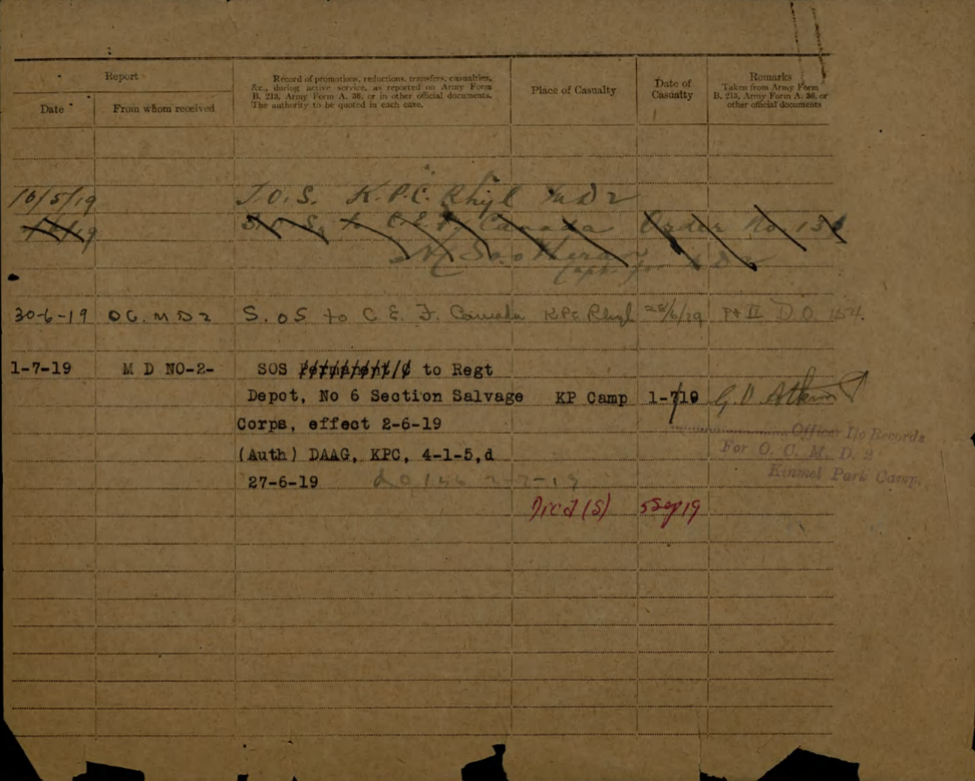 Report
Date
From whom received
Record of promotions, reductions, transfers, casualties,
&c., during active service, as reported on Army Form
B. 213, Army Form A. 36, or in other official documents.
The authority to be quoted in each case.
Place of Casualty
Date of
Casualty
Remarks
Taken from Army Form
B. 213, Army Form A. 36, or
other official documents
16/5/19 T.O.S. K.P.C. Rhyl M D 2
S.O.S. to C.E.F. Canada Order No. 13
30-6-19 O C. M D 2 S. O S to C. E. F. Canada KPC Rhyl 28/6/19 Pt II D.O. 154.
1-7-19 M D NO-2- SOS to Regt
Depot, No 6 Section Salvage KP Camp 1-7-19
Corps, effect 2-6-19
(Auth) DAAG, KPC, 4-1-5,d
27-6-19
Officer i/c Records
For O. C. M. D. 2
Kinmel Park Camp.
Died (S) 5 Sep 19